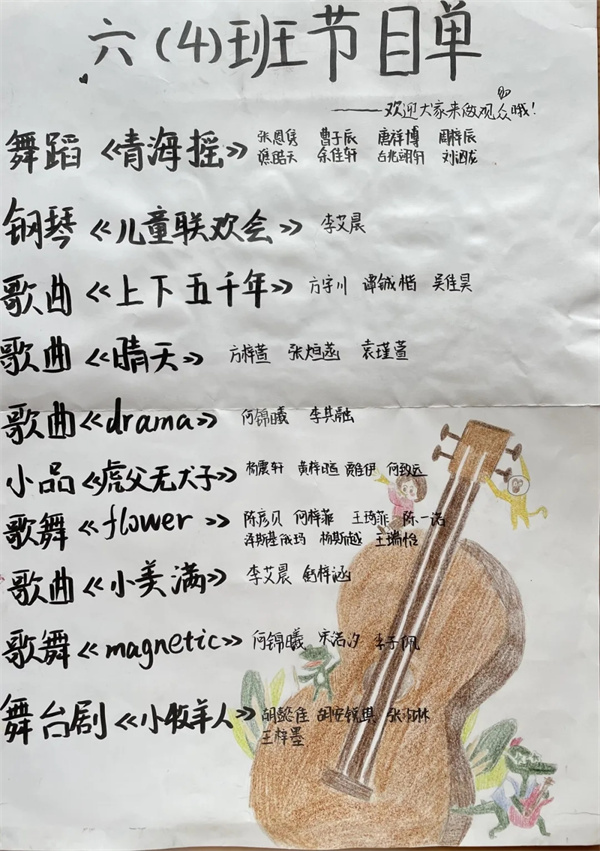 六(4)班节目单
——欢迎大家来做观众哦!
舞蹈《青海摇》 张恩隽 曹子辰 唐祥博 周梓辰
皓天 余佳轩 台兆翊轩 刘泗龙
钢琴《儿童联欢会》 李艾晨
歌曲《上下五千年》 方宇川 谭铖楷 吴佳昊
歌曲《晴天》 方梓萱 张烜菡 袁瑾萱
歌曲《drama》 何锦曦 李其融
小品《虎父无犬子》 杨震轩 黄梓暄 伊 何致远
歌舞《flower》 陈彦贝 何梓菲 王琦菲 陈一诺
泽斯基成玛 杨斯越 王瑞怡
歌曲《小美满》 李艾晨 舒梓涵
歌舞《magnetic》 何锦曦 宋洺汐 李子佩
舞台剧《小牧羊人》 胡懿佳 胡安锐琪 张林
王梓墨